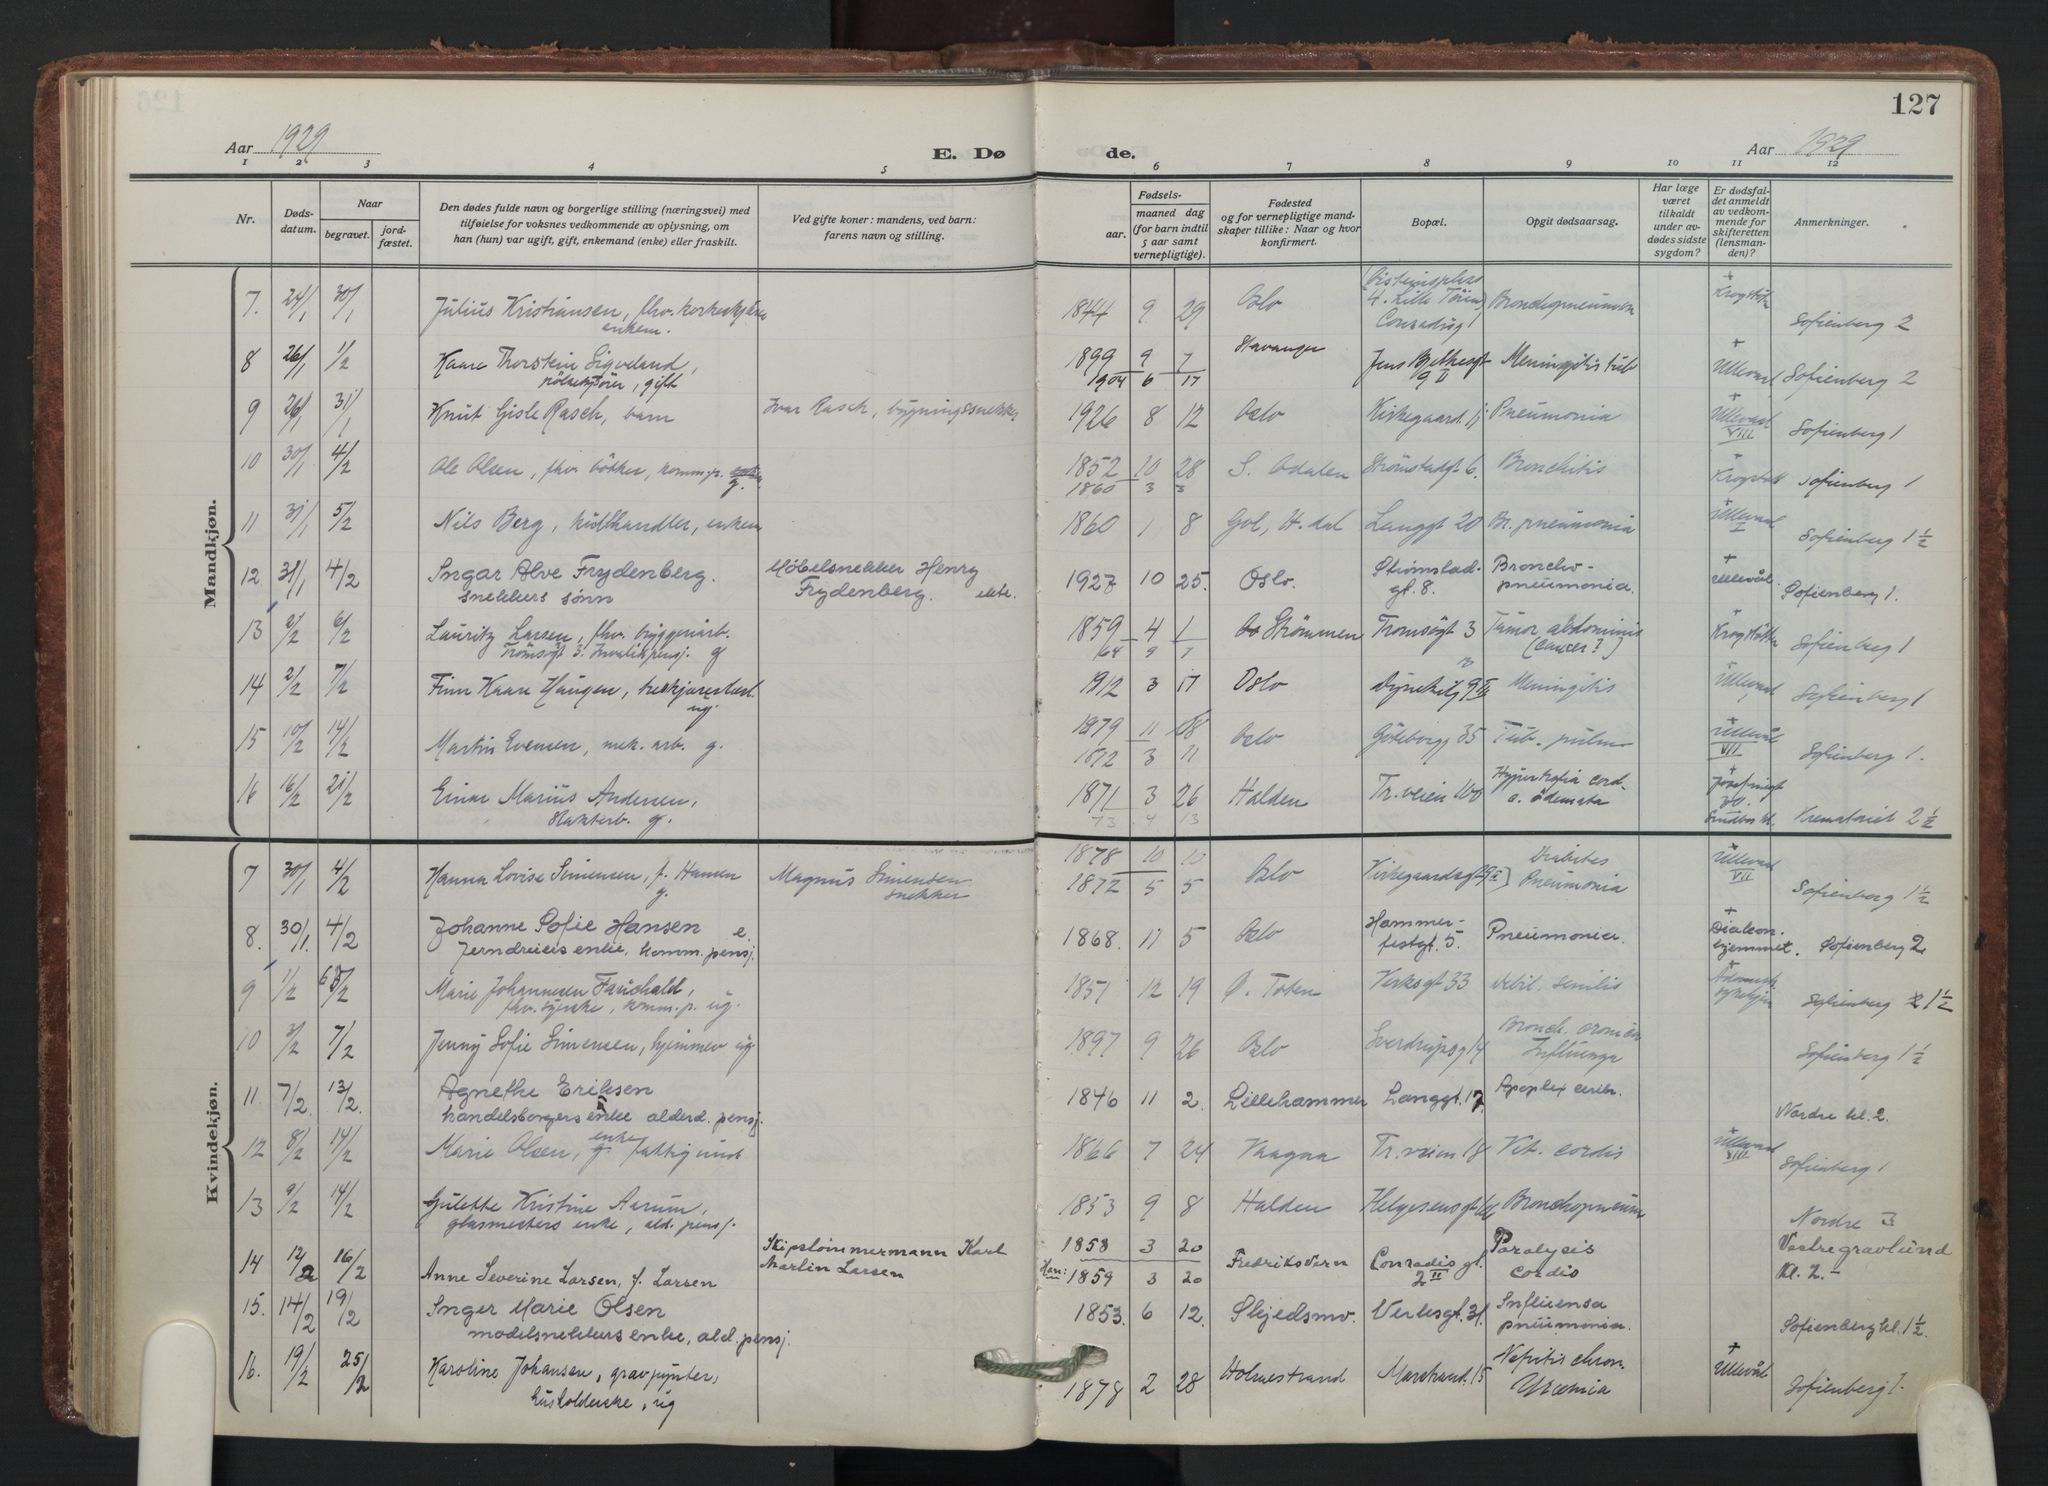 127
Aar 1929
E. Dø
de.
Aar 1929
1 2 3 4 5 6 7 8 9 10 11 12
Nr.
Døds-
datum.
Naar
begravet.
jord-
fæstet.
Den dødes fulde navn og borgerlige stilling (næringsvei) med
tilføielse for voksnes vedkommende av oplysning, om
han (hun) var ugift, gift, enkemand (enke) eller fraskilt.
Ved gifte koner: mandens, ved barn:
farens navn og stilling.
Fødsels-
aar.
maaned dag
(for barn indtil
5 aar samt
vernepligtige).
Fødested
og for vernepligtige mand-
skaper tillike: Naar og hvor
konfirmert.
Bopæl.
Opgit dødsaarsag.
Har læge
været
tilkaldt
under av-
dødes sidste
sygdom?
Er dødsfal-
det anmeldt
av vedkom-
mende for
skifteretten
(lensman-
den)?
Anmerkninger.
Mandkjøn.
7. 24/1 30/1 Julius Kristiansen, fhv. 1844 9 29 Oslo 4. Lille Tøien Bronchopneumon + Krogstøtt Sofienberg 2
enkem. Conradisg 1
8 26/1 1/2 Kaare Thorstein Sigveland, 1899 9 7 Stavanger Jens Bjelkesgt Meningitis tub + Ullevaal Sofienberg 2
gift 1904 6 17 9 II
9 26/1 31/1 Knut Gisle Rasch, barn Ivar Rasch, bygningssnekker 1926 8 12 Oslo Kirkegaard. Pneumonia + Ullevaal VIII Sofienberg 1
10 30/1 4/2 Ole Olsen, fhv. bøtker, komm. p. g. 1852 10 28 S. Odalen Strømstadgt 6. Bronchitis + Krogstøtt Sofienberg 1
1860 3 3
11 31/1 5/2 Nils Berg, kulhandler, enkem 1860 1 8 Gol, H. dal Langgt 20 Br. pneumonia + Ullevaal I Sofienberg 1 1/2
12. 31/1 4/2 Ingar Alve Frydenberg. Møbelsnekker Henry 1927 10 25. Oslo. Strømstad- Broncho- + Ullevål. Sofienberg 1.
snekkers sønn Frydenberg. ekte. gt. 8. pneumonia.
13 2/2 6/2 Lauritz Larsen, fhv. bryggeriarb. 1859 4 1 Strømmen Tromsøgt 3 Tumor abdominis + Krogstøtten Sofienberg 1
Tromsøgt 3. Invalidepensj. g 64 9 7 (cancer?)
14 2/2 7/2 Finn Kaare Haugen, ug. 1912 3 17 Oslo Dynekilg 9 III Meningitis + Ullevaal Sofienberg 1
15 10/2 14/2 Martin Evensen, mek. arb. g. 1879 11 18 Oslo Gøteborgg 35 Tub. pulm + Ullevål VII Sofienberg 1.
1872 3 11
16 16/2 21/2 Einar Marius Andersen, 1871 3 26 Halden Tr. veien 100 Hypertrofia cord- + Josefinegt 30. Krematoriet 2 1/2
g. 73 4 13 o. ødemata
Kvindekjøn.
7 30/1 4/2 Hanna Lovise Simensen, f. Hansen Magnus Simensen 1878 10 10 Oslo Kirkegaardsgt Diabetes + Ullevaal VII Sofienberg 1 1/2
g. snekker 1872 5 5 Pneumonia
8. 30/1. 4/2 Johanne Sofie Hansen e. 1868. 11 5 Oslo Hammer- Pneumonia. + Diakon- Sofienberg 2
Jerndreiers enke, komm. pensj. festgt. 5. hjemmet.
9 1/2 6/2 Marie Johannesen Fauchald, 1851 12 19 Ø. Toten Verksgt 33 debil. senilis + Sofienberg 1 1/2
fhv. syerske, komm. p. ug.
10 3/2 7/2 Jenny Sofie Simensen, hjemmev ug. 1897 9 26 Oslo Sverdrupsg 14 Bronch. cronica Sofienberg 1 1/2
Influenza
11. 7/2. 13/2. Agnethe Eriksen 1846 11 2. Lillehammer Langgt. 17. Apoplex cerebr. Nordre kl. 2.
handelsborgers enke alderd. pensj.
12 8/2 14/2 Marie Olsen, enke fattigund 1866 7 24 Vaagaa Tr. veien 18 Vit. cordis + Ullevaal VIII Sofienberg 1
13 9/2 14/2 Gulette Kristine Aarum, 1853 9 8 Halden Helgesensgt Bronchopneum Nordre
glasmesters enke, ald. pensj.
14 12/2 16/2 Anne Severine Larsen, f. Larsen Skipstømmermann Karl 1858 3 20 Fredriksvern Conradis gt. Paralysis Vestre gravlund
Martin Larsen Han: 1859 3 20 2 II cordis Kl. 2.
15. 14/2 19/2 Inger Marie Olsen 1853. 6 12. Skjedsmo. Verksgt. 31. Influensa Sofienberg kl. 1 1/2.
modelsnekkers enke, ald. pensj. pneumonia.
16. 19/2 25/2 Karoline Johansen, gravpynter, 1878 2 28 Holmestrand Marstrand. 15 Nefritis chron- + Ullevål Sofienberg 1.
husholderske, ug Uræmia